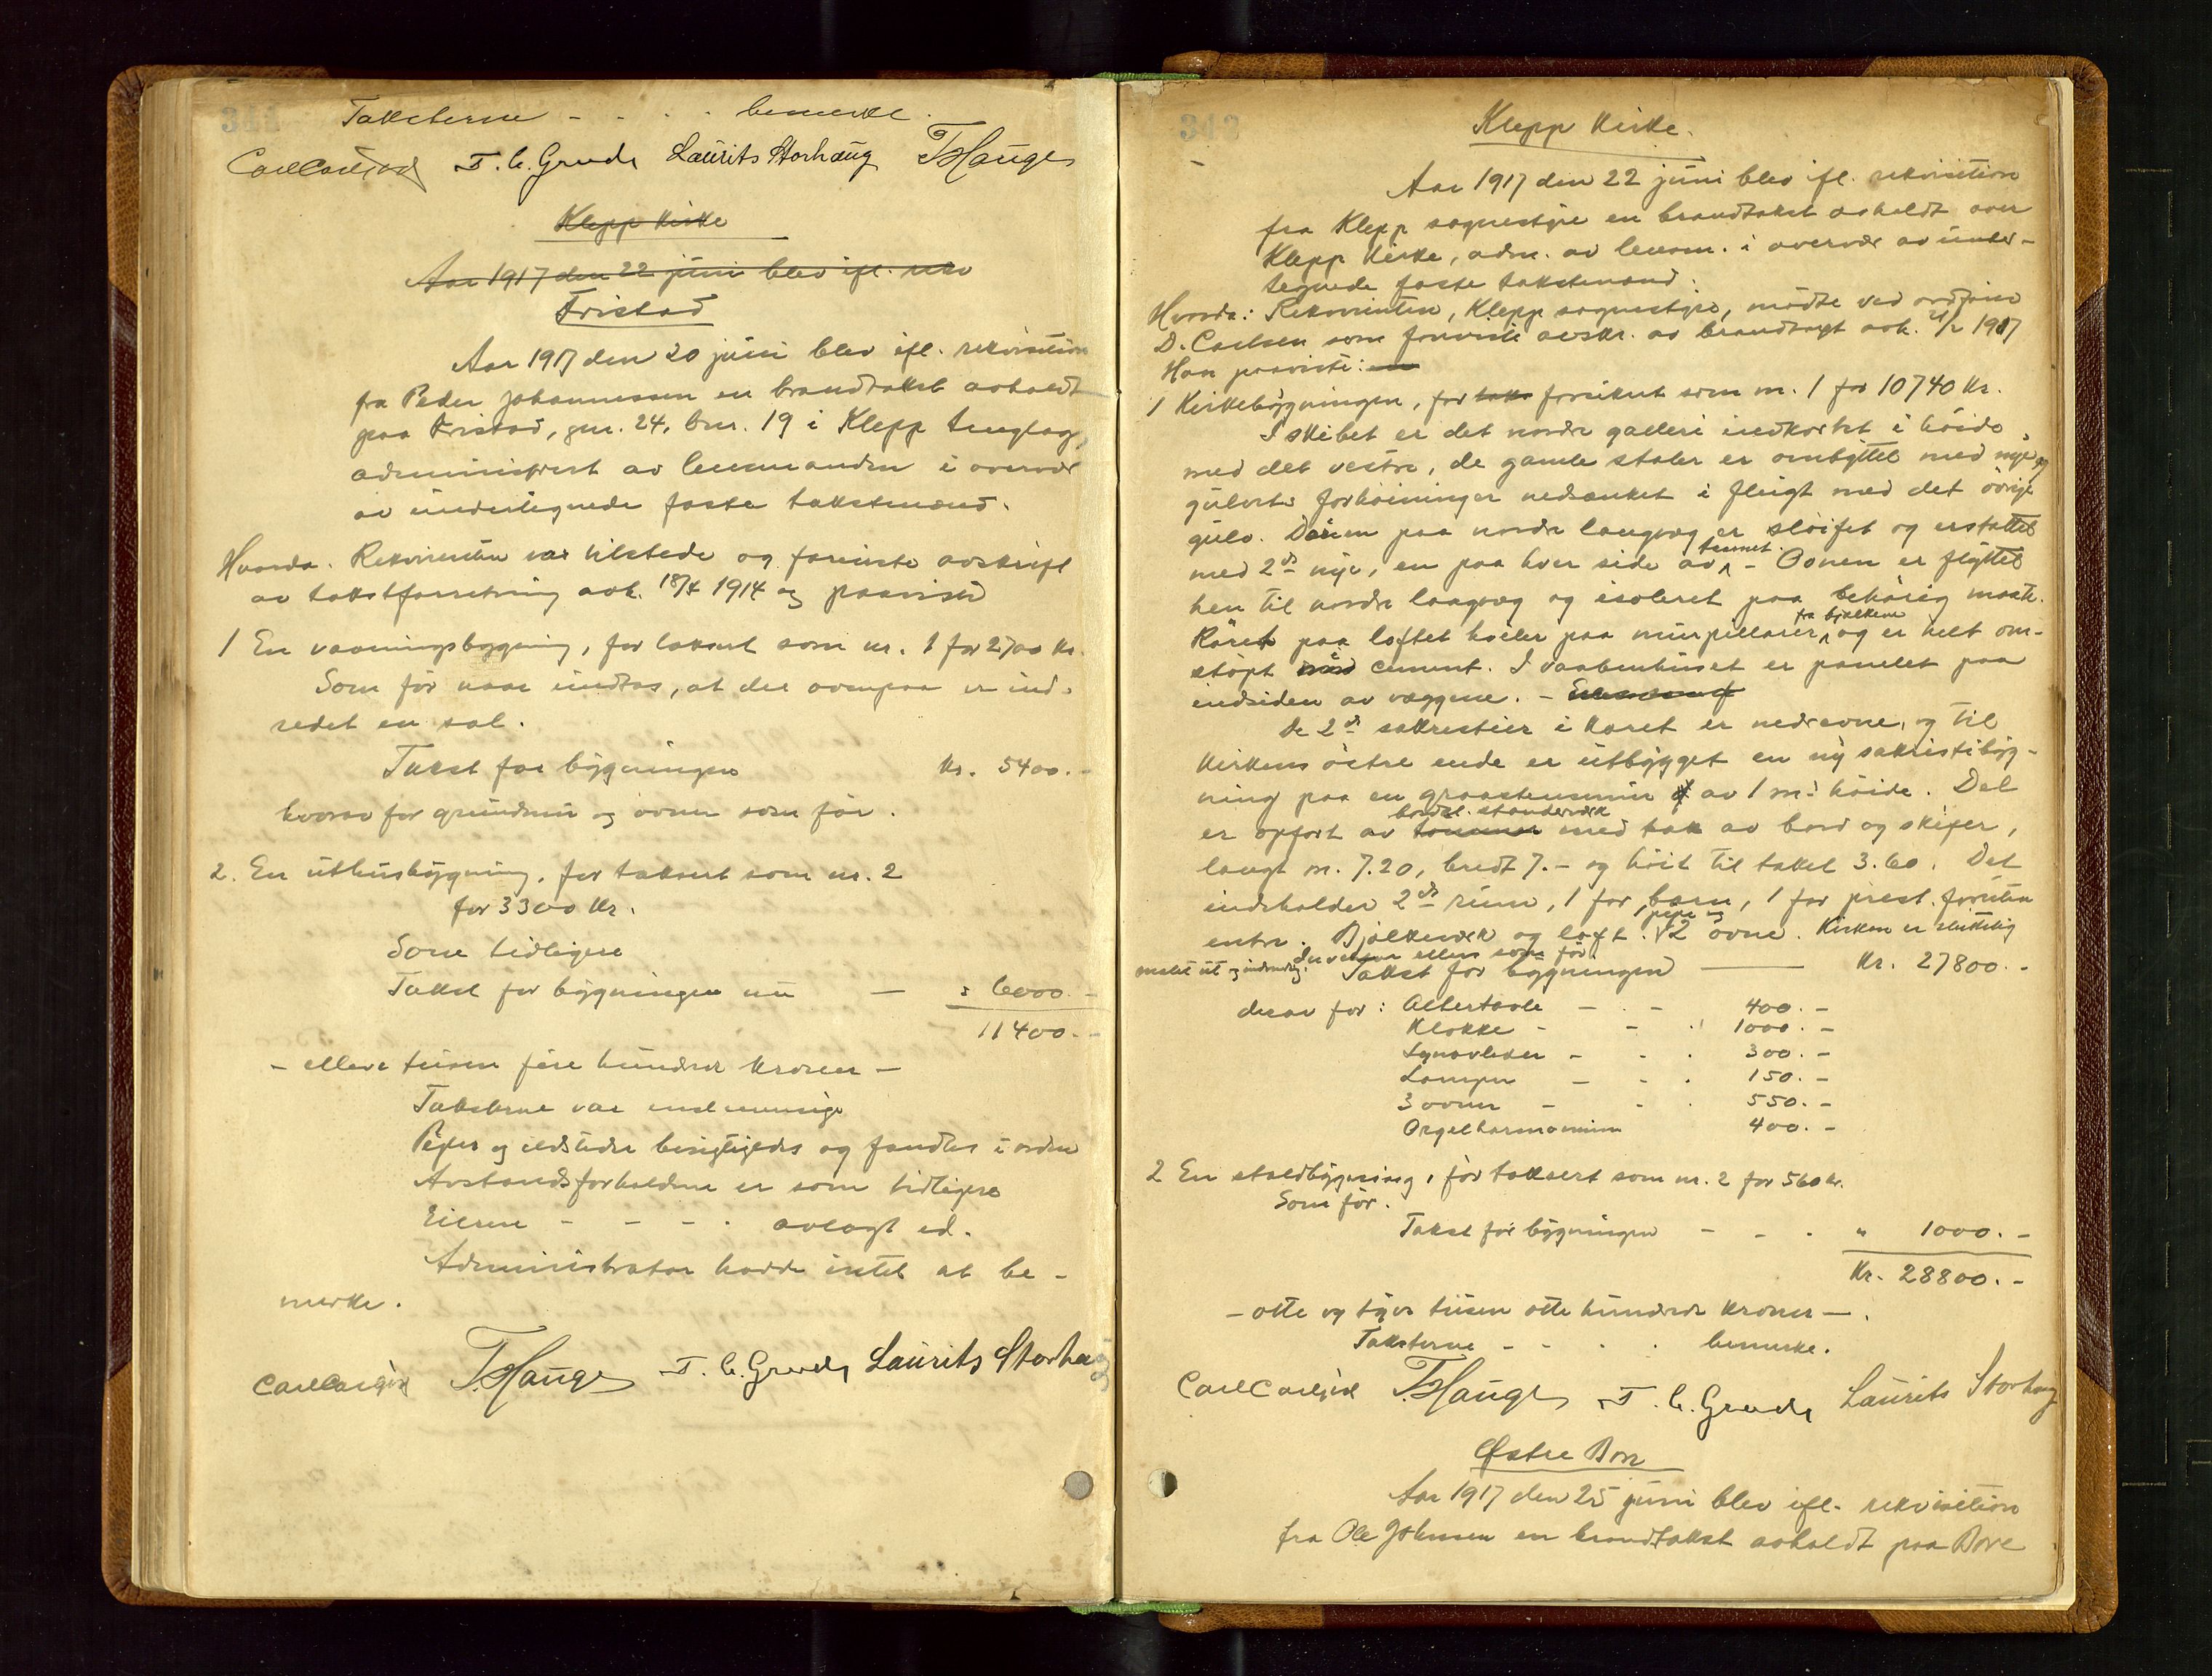 Taksterne - - . . bemerke.
T. C. Grude Laurits Storhaug T. Hauge
Klepp kirke
Aar 1917 den 22 juni blev ifl. rekv
Fristad
Aar 1917 den 20 juni blev ifl. rekvisition
fra Peder Johannessen en brandtakst avholdt
paa Fristad, gnr. 24, bnr. 19 i Klepp tinglag,
administrert av lensmanden i overvær
av undertegnede faste takstmænd.
Hvorda. Rekvirenten var tilstede og foreviste avskrift
av takstforretning avh. 18/4 1914 og paaviste
1 En vaaningsbygning, før taksert som nr. 1 for 2700 kr.
Som før naar undtas, at der ovenpaa er ind-
redet en sal.
Takst for bygningen kr. 5400.-
hvorav for grundmur og ovner som før.
2. En uthusbygning, før taksert som nr. 2
for 3300 kr.
Som tidligere
Takst for bygningen nu — " 6000.-
11400.-
- elleve tusen fire hundrede kroner -
Taksterne var enstemmige
Piper og ildsteder besigtigedes og fandtes i orden
Avstandsforholdene er som tidligere
Eieren - - - . avlagt ed.
Administrator hadde intet at be-
merke.
T. Hauge T. C. Grude Laurits Storhaug
343
Klepp kirke.
Aar 1917 den 22 juni blev ifl. rekvisition
fra Klepp sognestyre en brandtakst avholdt over
Klepp kirke, adm. av lensm. i overvær av under-
tegnede faste takstmænd.
Hvorda: Rekvirenten, Klepp sognestyre, mødte ved ordfører
D. Carlsen som foreviste avskr. av brandtakst avh. 1917
Han paaviste: en
1 Kirkebygningen, før taks forsikret som nr. 1 for 10740 kr.
I skibet er det nordre galleri indkortet i høide
med det vestre, de gamle stoler er ombyttet med nye og
gulvets forhøininger nedsænket i flugt med det øvrige
gulv. Døren paa nordre langvæg er sløifet og erstattet
med 2de nye, en paa hver side av taarnet. - Ovnen er flyttet
hen til nordre langvæg og isoleret paa behørig maate.
Røret paa loftet hviler paa murpillarer fra bjælkene og er helt om-
støpt med i cement. I vaabenhuset er panelet paa
indsiden av væggene. -
De 2de sakrestier i koret er nedrevne, og til
kirkens østre ende er utbygget en ny sakristibyg-
ning paa en graastensmur av 1 m.s høide. Det
er opført av tømmer bordkl. stenderverk med tak av bord og skifer,
langt m. 7.20, bredt 7.- og høit til taket 3.60. Det
indeholder 2de rum, 1 for barn, 1 for prest foruten
entre. Bjelkeverk og loft. 1 pipe og 2 ovne. Kirken er
malet ut og indvendig. Inventar ellers som før.
Takst for bygningen — kr. 27800.-
derav for: Altertavle - . - 400.-
Klokke - - . 1000.-
Lynavleder - - . 300.-
Lamper - - . 150.-
3 ovner - - . 550.-
Orgelharmonium 400.-
2 En staldbygning, før taksert som nr. 2 for 560 kr.
Som før.
Takst for bygningen - - . " 1000.-
Kr. 28800.-
- otte og tyve tusen otte hundrede kroner -.
Taksterne - . . . bemerke.
T. Hauge T. C. Grude Laurits Storhaug
Østre Bore
Aar 1917 den 25 juni blev ifl. rekvisition
fra Ole Johnsen en brandtakst avholdt paa Bore